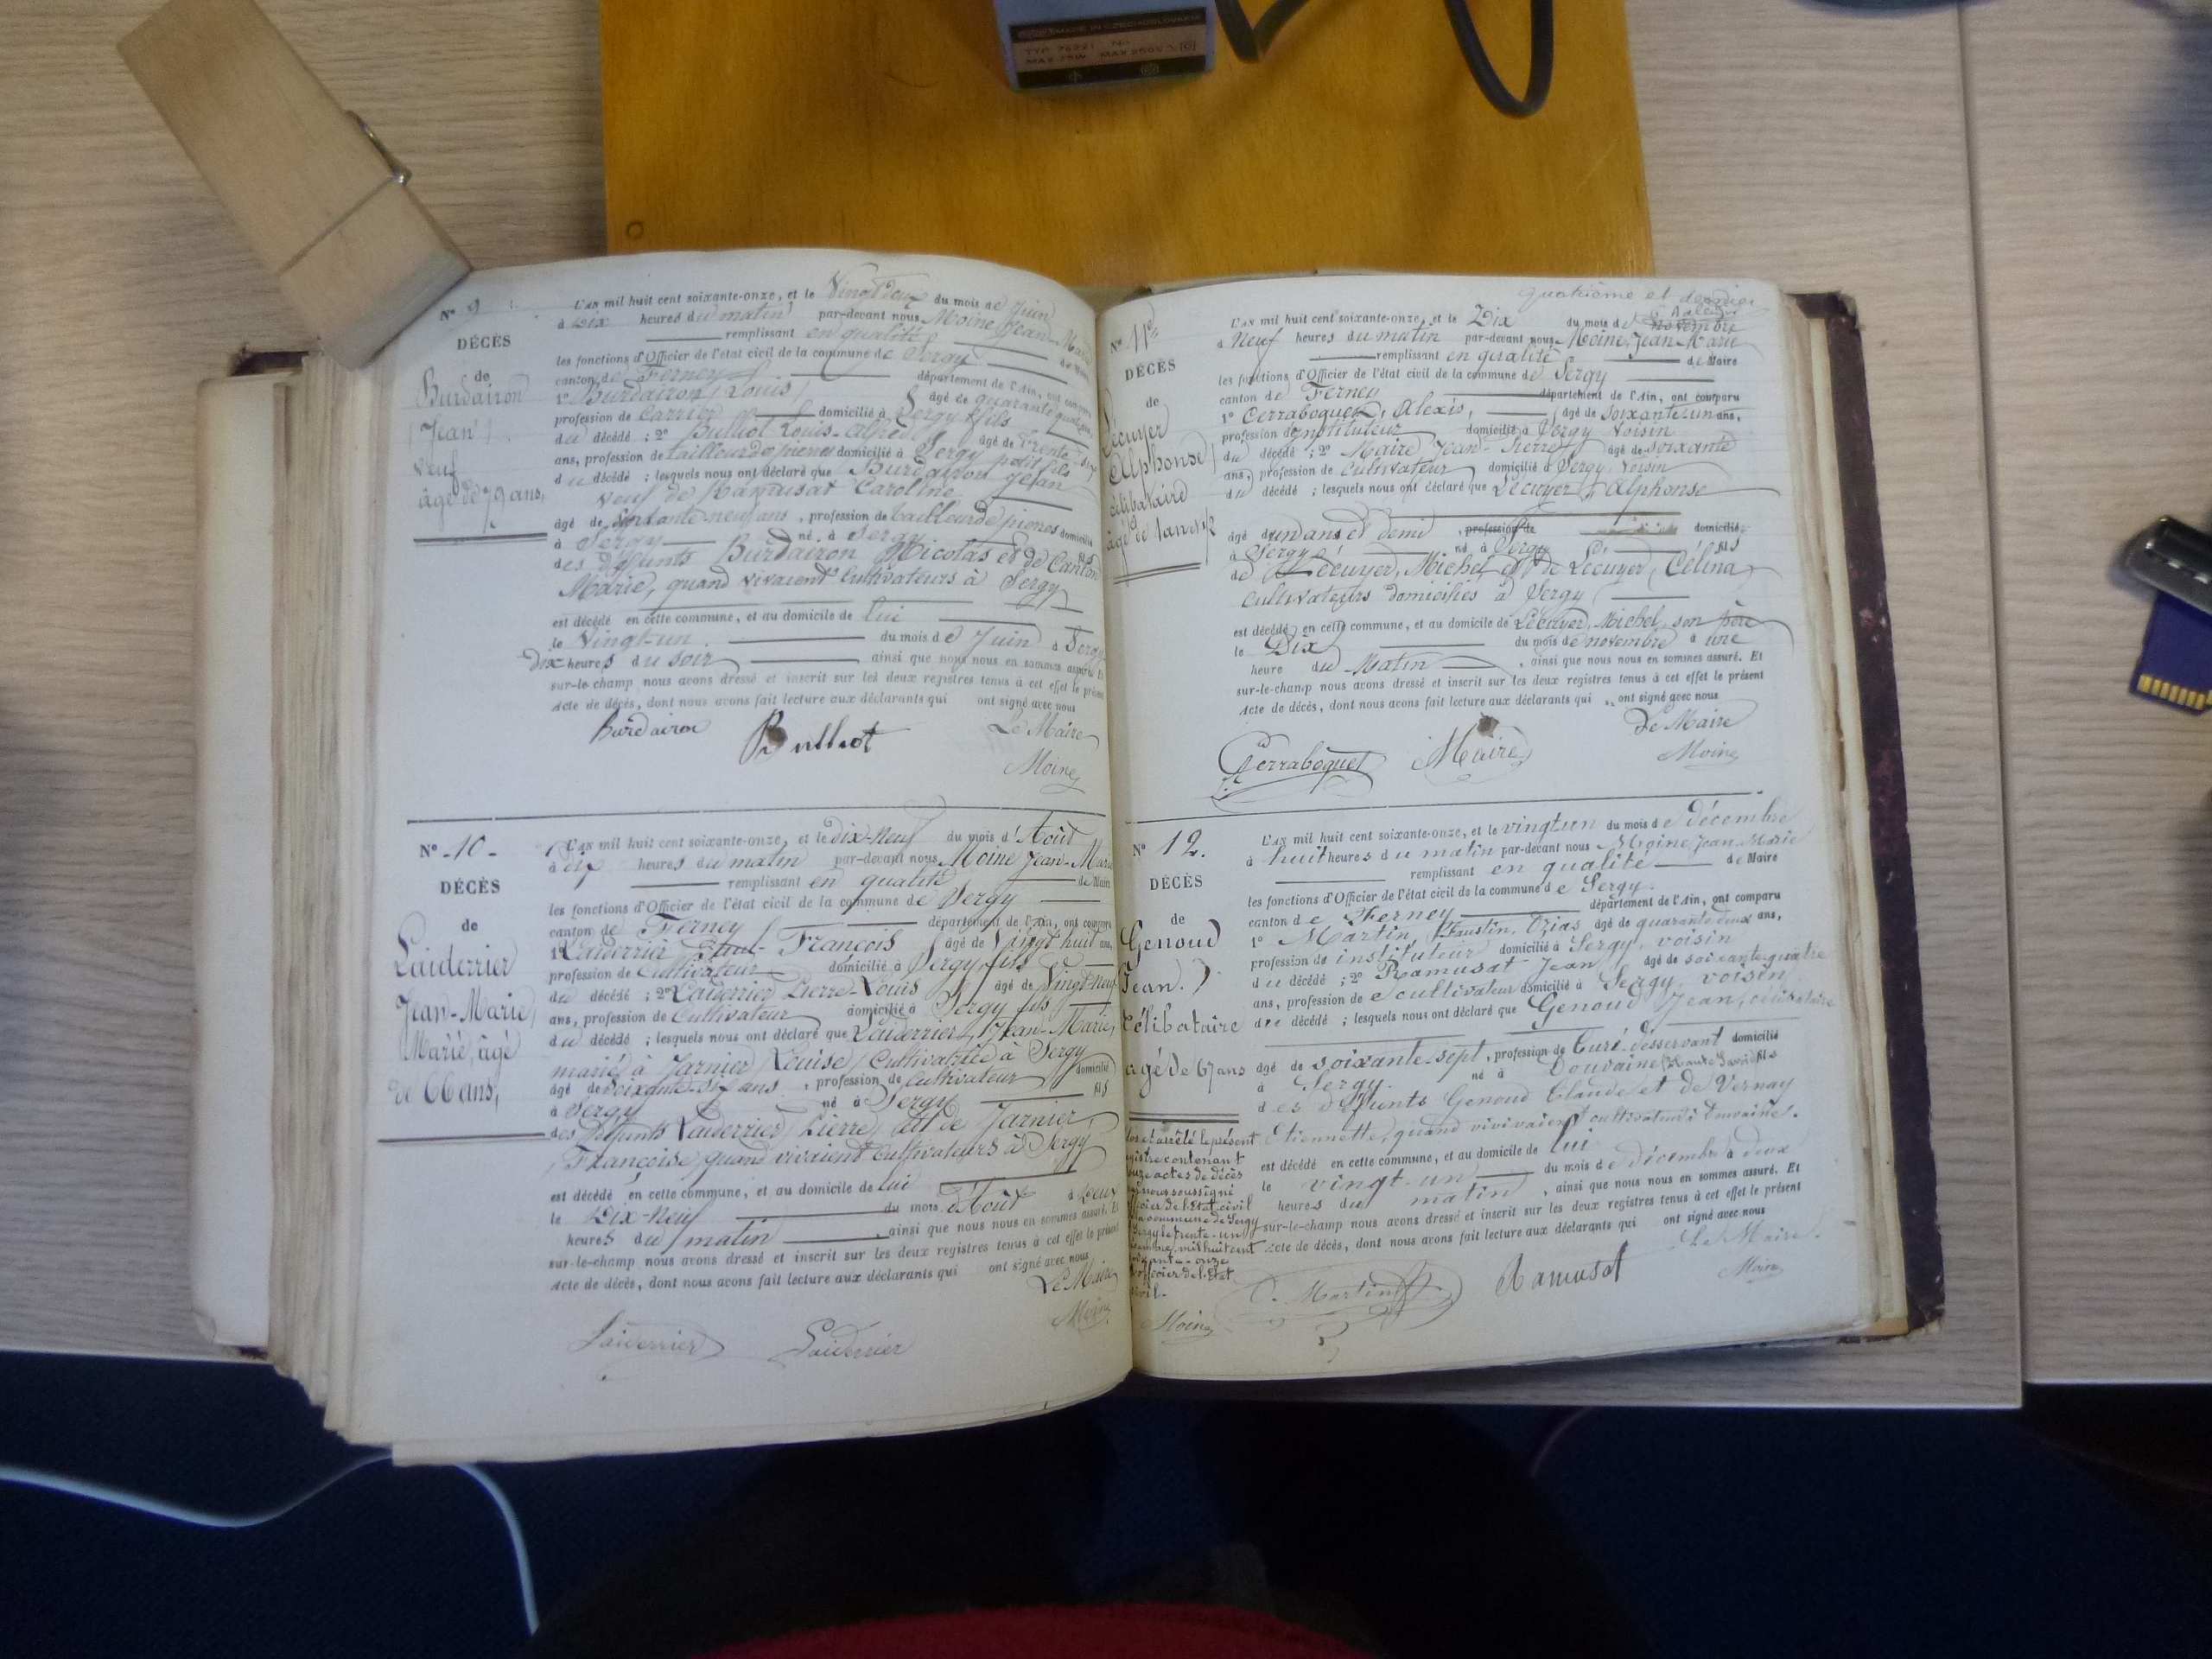 MADE IN CZECHOSLOVAKIA
N° 9
DÉCÈS
de
Burdairon
Jean
veuf
âgé de 79 ans,
L'AN mil huit cent soixante-onze, et le Vingt Deux du mois de Juin
à Dix heures du matin par-devant nous Moine Jean-Marie
remplissant en qualité de Maire
les fonctions d'Officier de l'état civil de la commune de Sergy
canton de Ferney département de l'Ain, ont comparu
1° Burdairon Louis âgé de quarante
profession de Carrier domicilié à Sergy fils
du décédé ; 2° Bulliot Louis-Alfred âgé de Trente
ans, profession de tailleur de pierres domicilié à Sergy petit fils
du décédé ; lesquels nous ont déclaré que Burdairon Jean
veuf de Ramusat Caroline
âgé de soixante-neuf ans, profession de tailleur de pierres domicilié
à Sergy né à Sergy fils
des défunts Burdairon Nicolas et de
Marie, quand vivaient Cultivateurs à Sergy
est décédé en cette commune, et au domicile de lui
le Vingt-un du mois de Juin à
Dix heures du soir ainsi que nous nous en sommes assuré. Et
sur-le-champ nous avons dressé et inscrit sur les deux registres tenus à cet effet le présent
Acte de décès, dont nous avons fait lecture aux déclarants qui ont signé avec nous
Burdairon Bulliot Le Maire
Moine
N° 10
DÉCÈS
de
Laiderrier
Jean-Marie,
Marié, âgé
de 66 ans,
L'AN mil huit cent soixante-onze, et le Dix-Neuf du mois d'Août
à dix heures du matin par-devant nous Moine Jean-Marie
remplissant en qualité de Maire
les fonctions d'Officier de l'état civil de la commune de Sergy
canton de Ferney département de l'Ain, ont comparu
1° Laiderrier François âgé de Vingt huit ans,
profession de Cultivateur domicilié à Sergy, fils
du décédé ; 2° Laiderrier Pierre-Louis âgé de Vingt-neuf
ans, profession de Cultivateur domicilié à Sergy fils
du décédé ; lesquels nous ont déclaré que Laiderrier, Jean-Marie,
marié à Jarnier Louise Cultivatrice à Sergy
âgé de soixante-six ans, profession de Cultivateur domicilié
à Sergy né à Sergy fils
des Défunts Laiderrier Pierre, et de Jarnier
Françoise, quand vivaient Cultivateurs à Sergy
est décédé en cette commune, et au domicile de lui
le Dix-Neuf du mois d'Août à deux
heures du matin, ainsi que nous nous en sommes assuré. Et
sur-le-champ nous avons dressé et inscrit sur les deux registres tenus à cet effet le présent
Acte de décès, dont nous avons fait lecture aux déclarants qui ont signé avec nous
Le Maire
Laiderrier Laiderrier Moine
quatrième et dernier
N° 11
DÉCÈS
de
Lécuyer
Alphonse
célibataire
âgé de 1 an 1/2
L'AN mil huit cent soixante-onze, et le Dix du mois de novembre
à Neuf heures du matin par-devant nous Moine, Jean-Marie
remplissant en qualité de Maire
les fonctions d'Officier de l'état civil de la commune de Sergy
canton de Ferney département de l'Ain, ont comparu
1° Cerraboquet, Alexis, âgé de soixante-un ans,
profession de instituteur domicilié à Sergy voisin
du décédé ; 2° Maire Jean-Pierre âgé de soixante
ans, profession de Cultivateur domicilié à Sergy, voisin
du décédé ; lesquels nous ont déclaré que Lécuyer, Alphonse
âgé d'un ans et demi, profession de domicilié
à Sergy né à Sergy fils
de Lécuyer, Michel et de Lécuyer, Célina
cultivateurs domiciliés à Sergy
est décédé en cette commune, et au domicile de Lécuyer, Michel son père
le Dix du mois de novembre à une
heure du Matin, ainsi que nous nous en sommes assuré. Et
sur-le-champ nous avons dressé et inscrit sur les deux registres tenus à cet effet le présent
Acte de décès, dont nous avons fait lecture aux déclarants qui ont signé avec nous
Le Maire
Cerraboquet Maire Moine
N° 12.
DÉCÈS
de
Genoud
Jean.
Célibataire
agé de 67 ans
L'AN mil huit cent soixante-onze, et le vingt un du mois de décembre
à huit heures du matin par-devant nous Moine Jean Marie
remplissant en qualité de Maire
les fonctions d'Officier de l'état civil de la commune de Sergy.
canton de Ferney département de l'Ain, ont comparu
1° Martin, Faustin, Ozias âgé de quarante deux ans,
profession de instituteur domicilié à Sergy, voisin
du décédé ; 2° Ramusat Jean âgé de soixante quatre
ans, profession de cultivateur domicilié à Sergy, voisin
du décédé ; lesquels nous ont déclaré que Genoud Jean, célibataire
âgé de soixante-sept, profession de Curé desservant domicilié
à Sergy. né à Douvaine (Haute Savoie) fils
des défunts Genoud Claude et de Vernay
Etiennette, quand vivivaient cultivateurs à Douvaine.
est décédé en cette commune, et au domicile de lui
le vingt-un du mois de décembre à deux
heures du matin, ainsi que nous nous en sommes assuré. Et
sur-le-champ nous avons dressé et inscrit sur les deux registres tenus à cet effet le présent
Acte de décès, dont nous avons fait lecture aux déclarants qui ont signé avec nous
Martin Ramusat Le Maire
Moine
et arrêté le présent
registre contenant
actes de décès
nous soussigné
officier de l'Etat civil
commune de Sergy
Sergy le trente-un
décembre, mil huit cent
soixante-onze
officier de l'Etat
civil.
Moine